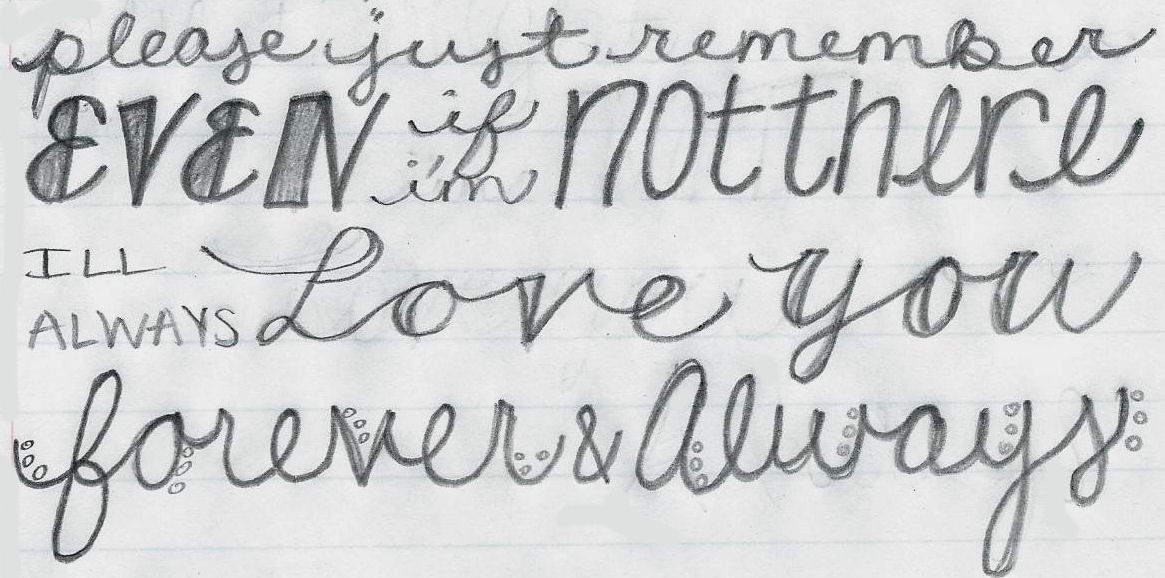 please just remember
EVEN if i'm not there
ILL ALWAYS Love you
forever & Always